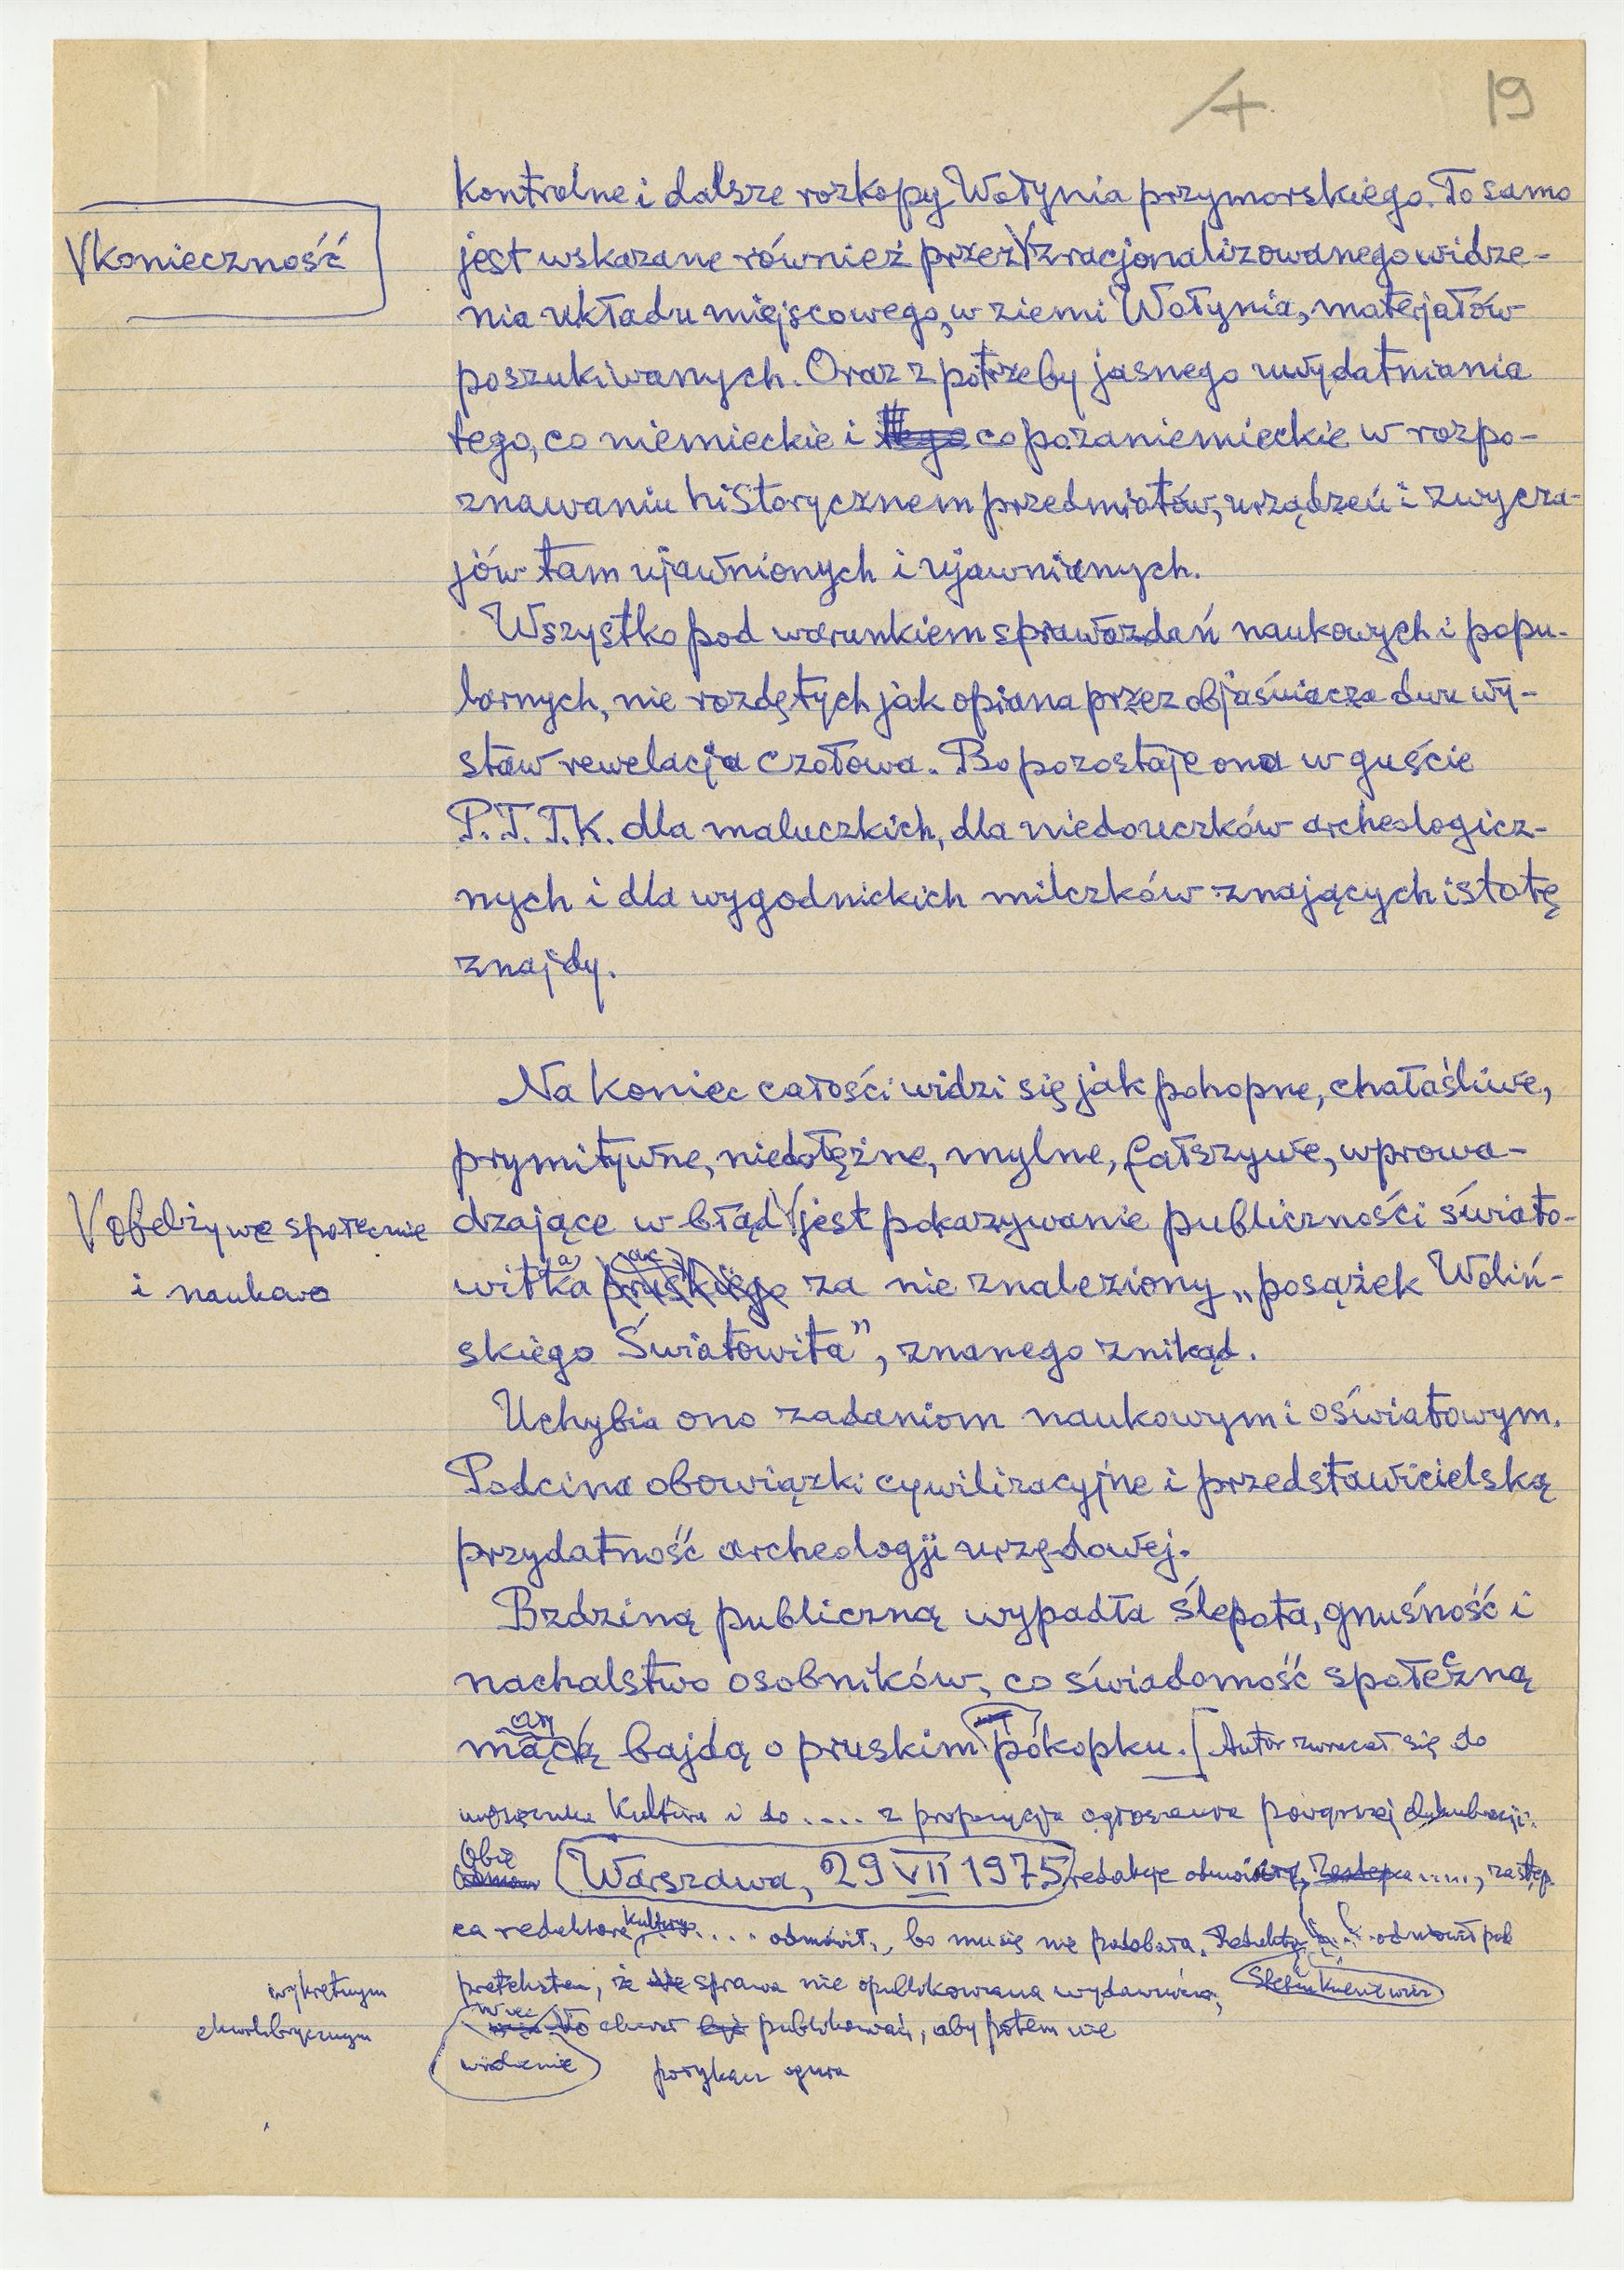 4.
19
kontrolne i dalsze rozkopy Wołynia przymorskiego. To samo
V konieczność
jest wskazane również przez V zracjonalizowanego widze-
nia układu miejscowego, w ziemi Wołynia, materjałów
poszukiwanych. Oraz z potrzeby jasnego uwydatniania
tego, co niemieckie i tego co pozaniemieckie w rozpo-
znawaniu historycznem przedmiotów, urządzeń i zwycza-
jów tam ujawnionych i ujawnianych.
Wszystko pod warunkiem sprawozdań naukowych i popu-
larnych, nie rozdętych jak opiana przez objaśniacza dwu wy-
staw rewelacja czołowa. Bo pozostaje ona w guście
P.T.T.K. dla maluczkich, dla niedouczków archeologicz-
nych i dla wygodnickich milczków znających istotę
znajdy.
Na koniec całości widzi się jak pohopne, chałaśliwe,
prymitywne, niedołężne, mylne, fałszywe, wprowa-
V obelżywe społecznie
i naukowo
dzające w błąd V jest pokazywanie publiczności świato-
witka pruskiego za nie znaleziony „posążek Woliń-
skiego Światowita”, znanego znikąd.
Uchybia ono zadaniom naukowym i oświatowym.
Podcina obowiązki cywilizacyjne i przedstawicielską
przydatność archeologji urzędowej.
Bzdziną publiczną wypadła ślepota, gnuśność i
nachalstwo osobników, co świadomość społeczną
mącą bajdą o pruskim pokopku. [Autor zwracał się do
Kultura i do .... z propozycją ogłoszenia powyższej
Obie
Warszawa, 29 VII 1975 redakcje ....., zastęp
ca redaktora Kultury .... odmówił, bo mu się nie podobała. odmówił pod
wykrętnym
pretekstem, że sprawa nie opublikowana
więc to chciał publikować, aby potem nie